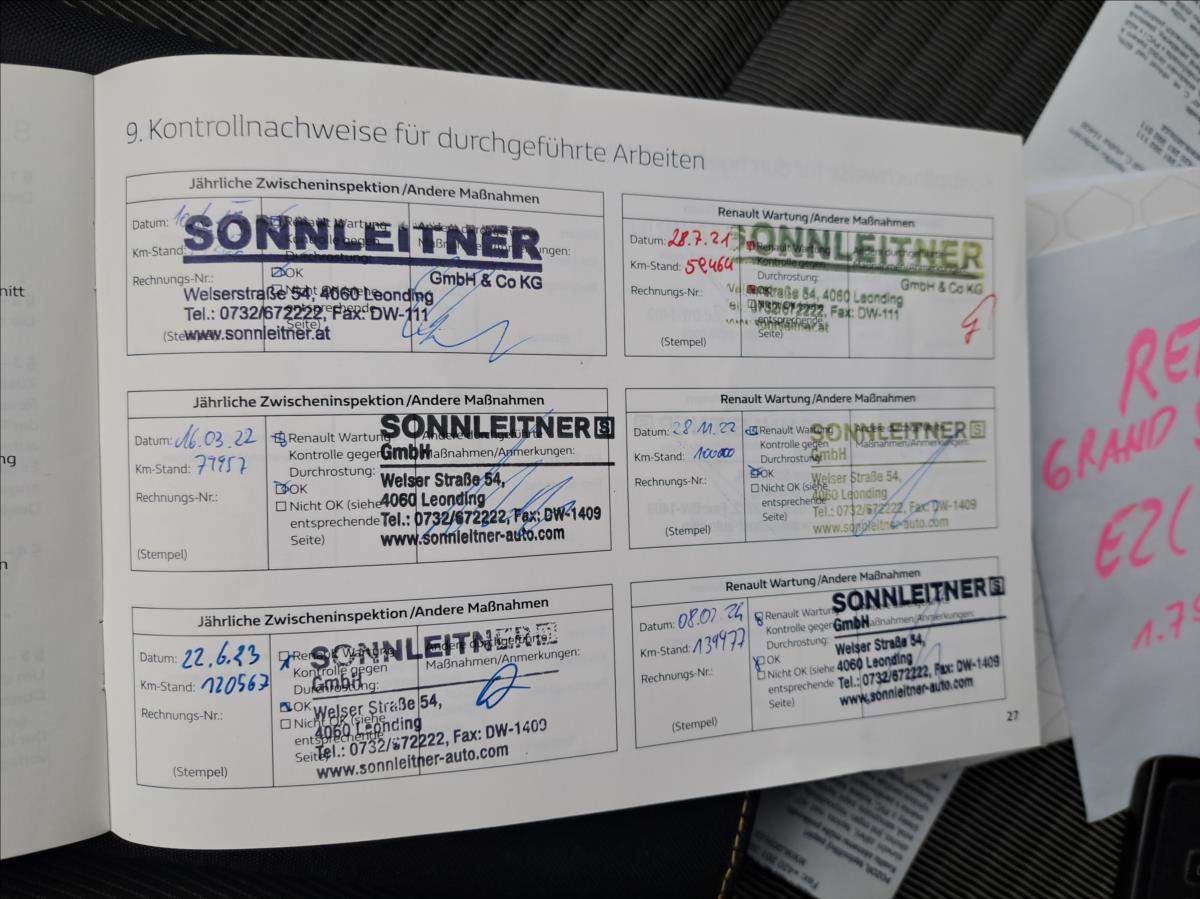 9. Kontrollnachweise für durchgeführte Arbeiten
Jährliche Zwischeninspektion/Andere Maßnahmen
Datum:
Km-Stand:
Rechnungs-Nr.:
Renault Wartung
Kontrolle gegen
Durchrostung:
OK
entsprechende
Seite)
SONNLEITNER
GmbH & Co KG
Welserstraße 54, 4060 Leonding
Tel.: 0732/672222, Fax: DW-111
www.sonnleitner.at
Renault Wartung/Andere Maßnahmen
Datum: 28.7.21
Km-Stand: 59464
Rechnungs-Nr.:
(Stempel)
Renault Wartung
Kontrolle gegen
Durchrostung:
OK
entsprechende
Seite)
SONNLEITNER
GmbH & Co KG
54, 4060 Leonding
0732/672222, Fax: DW-111
sonnleitner.at
Jährliche Zwischeninspektion/Andere Maßnahmen
Datum: 16.03.22
Km-Stand: 79957
Rechnungs-Nr.:
(Stempel)
Renault Wartung
Kontrolle gegen
Durchrostung:
OK
Nicht OK (siehe
entsprechende
Seite)
Maßnahmen/Anmerkungen:
SONNLEITNER S
GmbH
Welser Straße 54,
4060 Leonding
Tel.: 0732/672222, Fax: DW-1409
www.sonnleitner-auto.com
Renault Wartung/Andere Maßnahmen
Datum: 28.11.22
Km-Stand: 100000
Rechnungs-Nr.:
(Stempel)
Renault Wartung
Kontrolle gegen
Durchrostung:
OK
Nicht OK (siehe
entsprechende
Seite)
Maßnahmen/Anmerkungen:
SONNLEITNER S
GmbH
Welser Straße 54,
4060 Leonding
Tel.: 0732/672222, Fax: DW-1409
www.sonnleitner-auto.com
Jährliche Zwischeninspektion/Andere Maßnahmen
Datum: 22.6.23
Km-Stand: 120567
Rechnungs-Nr.:
(Stempel)
Renault Wartung
Kontrolle gegen
Durchrostung:
OK
Nicht OK (siehe
entsprechende
Seite)
Andere durchgeführte
Maßnahmen/Anmerkungen:
SONNLEITNER
GmbH
Welser Straße 54,
4060 Leonding
Tel.: 0732/672222, Fax: DW-1409
www.sonnleitner-auto.com
Renault Wartung/Andere Maßnahmen
Datum: 08.02.24
Km-Stand: 139977
Rechnungs-Nr.:
(Stempel)
Renault Wartung
Kontrolle gegen
Durchrostung:
OK
Nicht OK (siehe
entsprechende
Seite)
Maßnahmen/Anmerkungen:
SONNLEITNER S
GmbH
Welser Straße 54,
4060 Leonding
Tel.: 0732/672222, Fax: DW-1409
www.sonnleitner-auto.com
27
GRAND